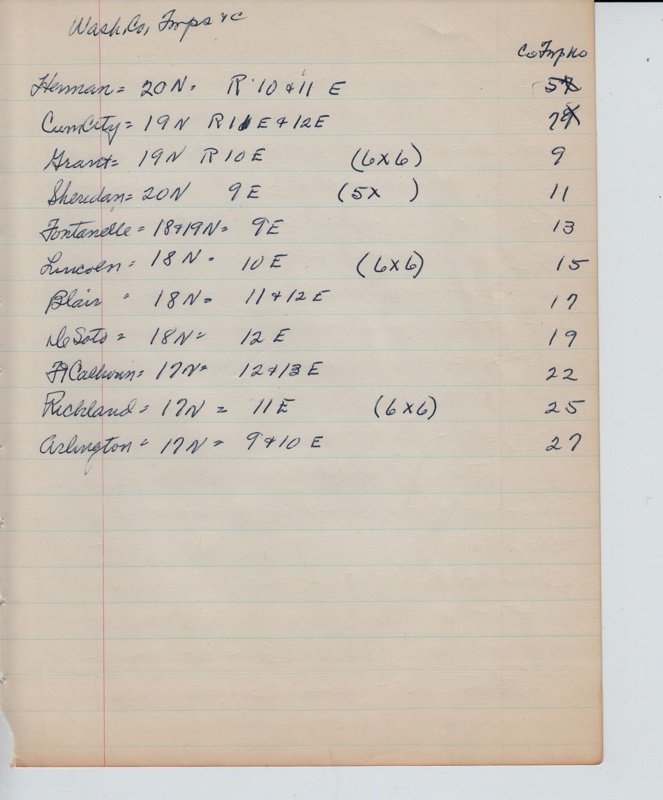 Wash. Co, Twps &c
Co Twp No
Herman = 20 N = R 10 & 11 E 5
Cum City = 19 N R 11 E & 12 E 7
Grant = 19 N R 10 E (6x6) 9
Sheridan = 20 N 9 E (5x ) 11
Fontanelle = 18 & 19 N = 9 E 13
Lincoln = 18 N = 10 E (6x6) 15
Blair " 18 N = 11 & 12 E 17
De Soto = 18 N = 12 E 19
Ft Calhoun = 17 N = 12 & 13 E 22
Richland = 17 N = 11 E (6x6) 25
Arlington = 17 N = 9 & 10 E 27